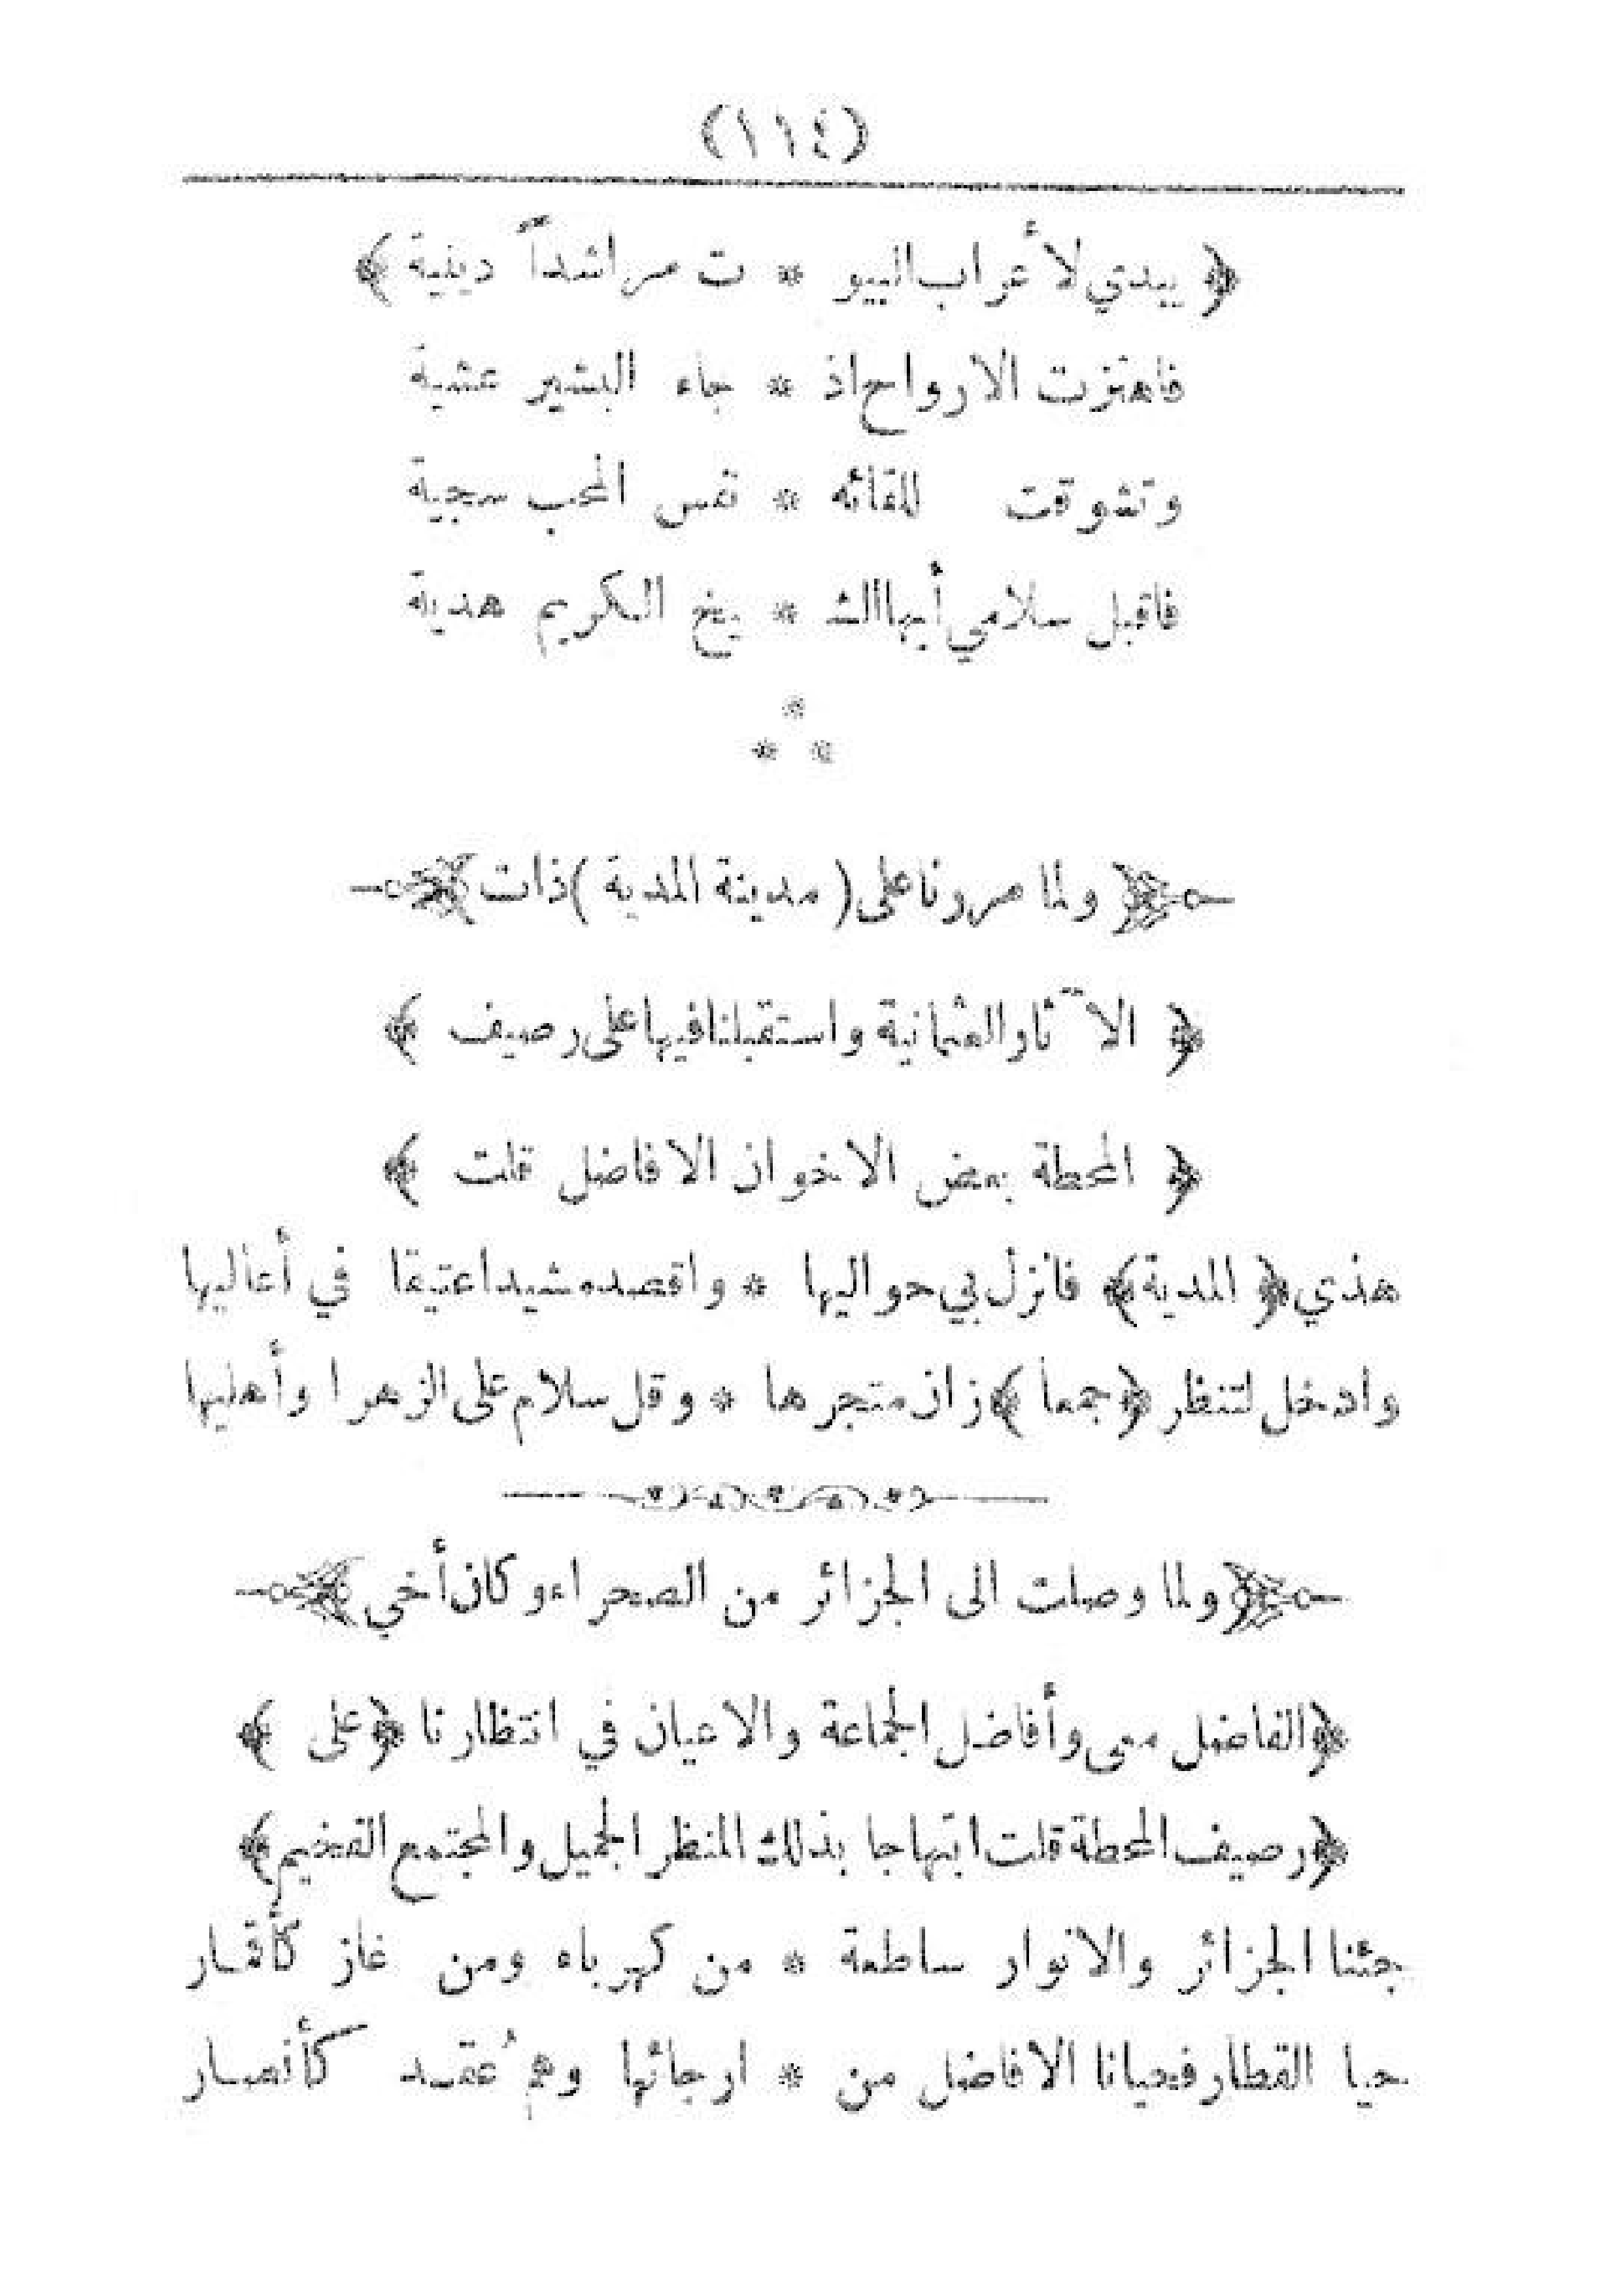 (١١٤)
﴿ يبدي لأعراب البيو * ت مراشداً دينية ﴾
فاهتزت الارواح اذ * جاء البشير عشية
وتشوقت للقائه * نفس المحب سجية
فاقبل سلامي أيها الشـ * ـيخ الكريم هدية
*
* *
﴿ ولما مررنا على ( مدينة المدية ) ذات ﴾
﴿ الآثار العثمانية واستقبلنا فيها على رصيف ﴾
﴿ المحطة بعض الاخوان الافاضل قلت ﴾
هذي ﴿ المدية ﴾ فانزل بي حواليها * واقصد مشيدا عتيقا في أعاليها
وادخل لتنظر ﴿ جمعا ﴾ زان متجرها * وقل سلام على الزهرا وأهليها
﴿ ولما وصلت الى الجزائر من الصحراء وكان أخي ﴾
﴿ الفاضل معى وأفاضل الجماعة والاعيان في انتظارنا ﴿ على ﴾
﴿ رصيف المحطة قلت ابتهاجا بذلك المنظر الجميل والمجتمع الفخيم ﴾
جئنا الجزائر والانوار ساطعة * من كهرباء ومن غاز كأقمار
حيا القطار فحيانا الافاضل من * ارجائها وهمُ عقد كأنصار